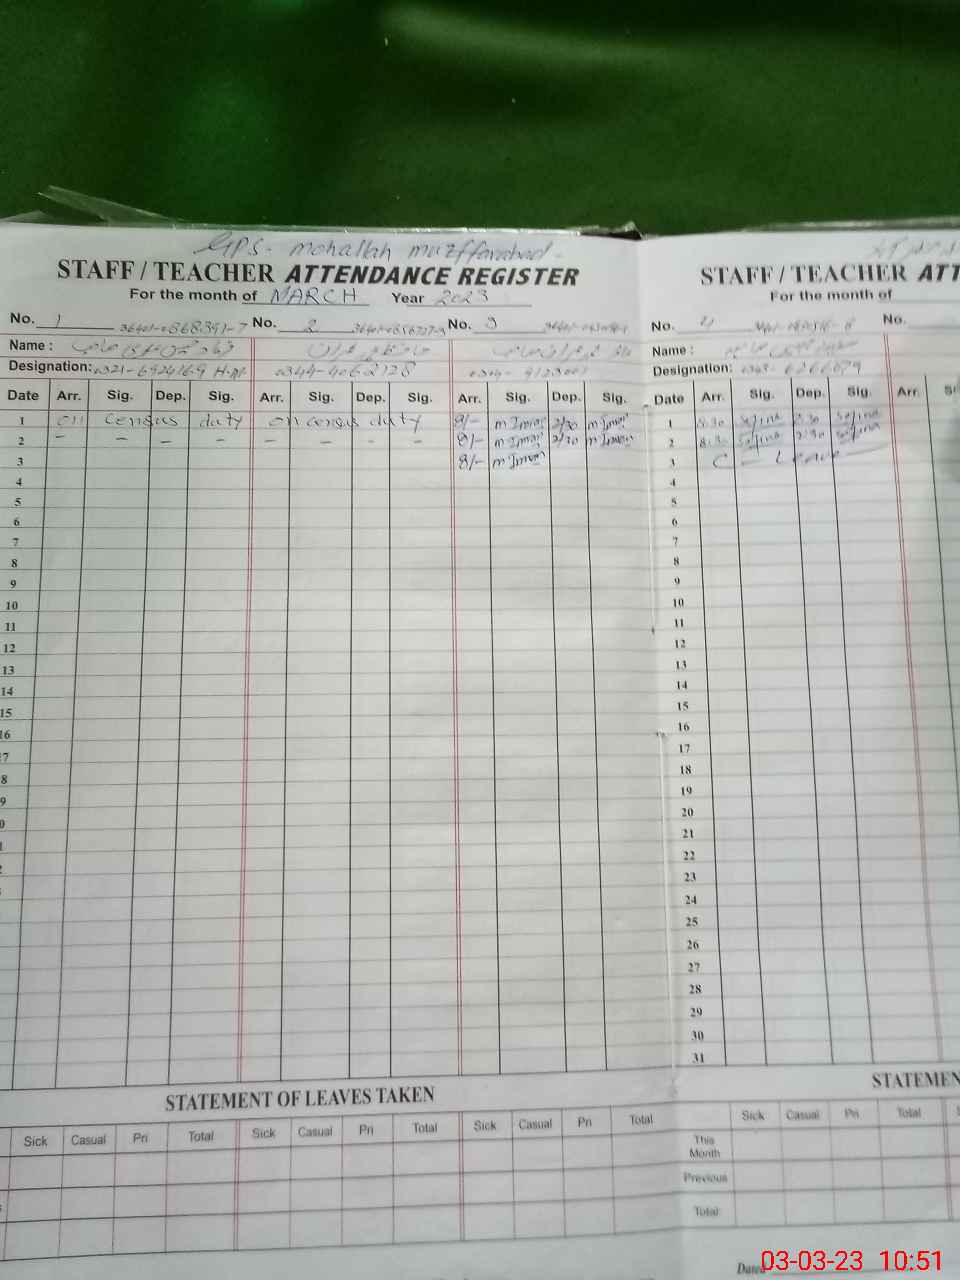 GPS- mohallah muzffarabad-
STAFF / TEACHER ATTENDANCE REGISTER
For the month of MARCH Year 2023
No. 1 No. 2 No. 3
Name :
Designation: 0321-6924169 0344-4062128
Date Arr. Sig. Dep. Sig. Arr. Sig. Dep. Sig. Arr. Sig. Dep. Sig.
1 on census duty on census duty 8/- m Imran 2/30 m Imran
2 - - - - - - - - 8/- m Imran 2/30 m Imran
3 8/- m Imran
4
5
6
7
8
9
10
11
12
13
14
15
16
7
8
9
0
STATEMENT OF LEAVES TAKEN
Sick Casual Pri Total Sick Casual Pri Total Sick Casual Pri Total
STAFF / TEACHER ATT
For the month of
No. 4 No.
Name :
Designation: 6266679
Date Arr. Sig. Dep. Sig. Arr.
1 8:30 Safina 2:30 Safina
2 8:30 Safina 2:30 Safina
3 C - Leave -
4
5
6
7
8
9
10
11
12
13
14
15
16
17
18
19
20
21
22
23
24
25
26
27
28
29
30
31
STATEMEN
Sick Casual Pri Total
This
Month
Previous
Total
Dated
03-03-23 10:51